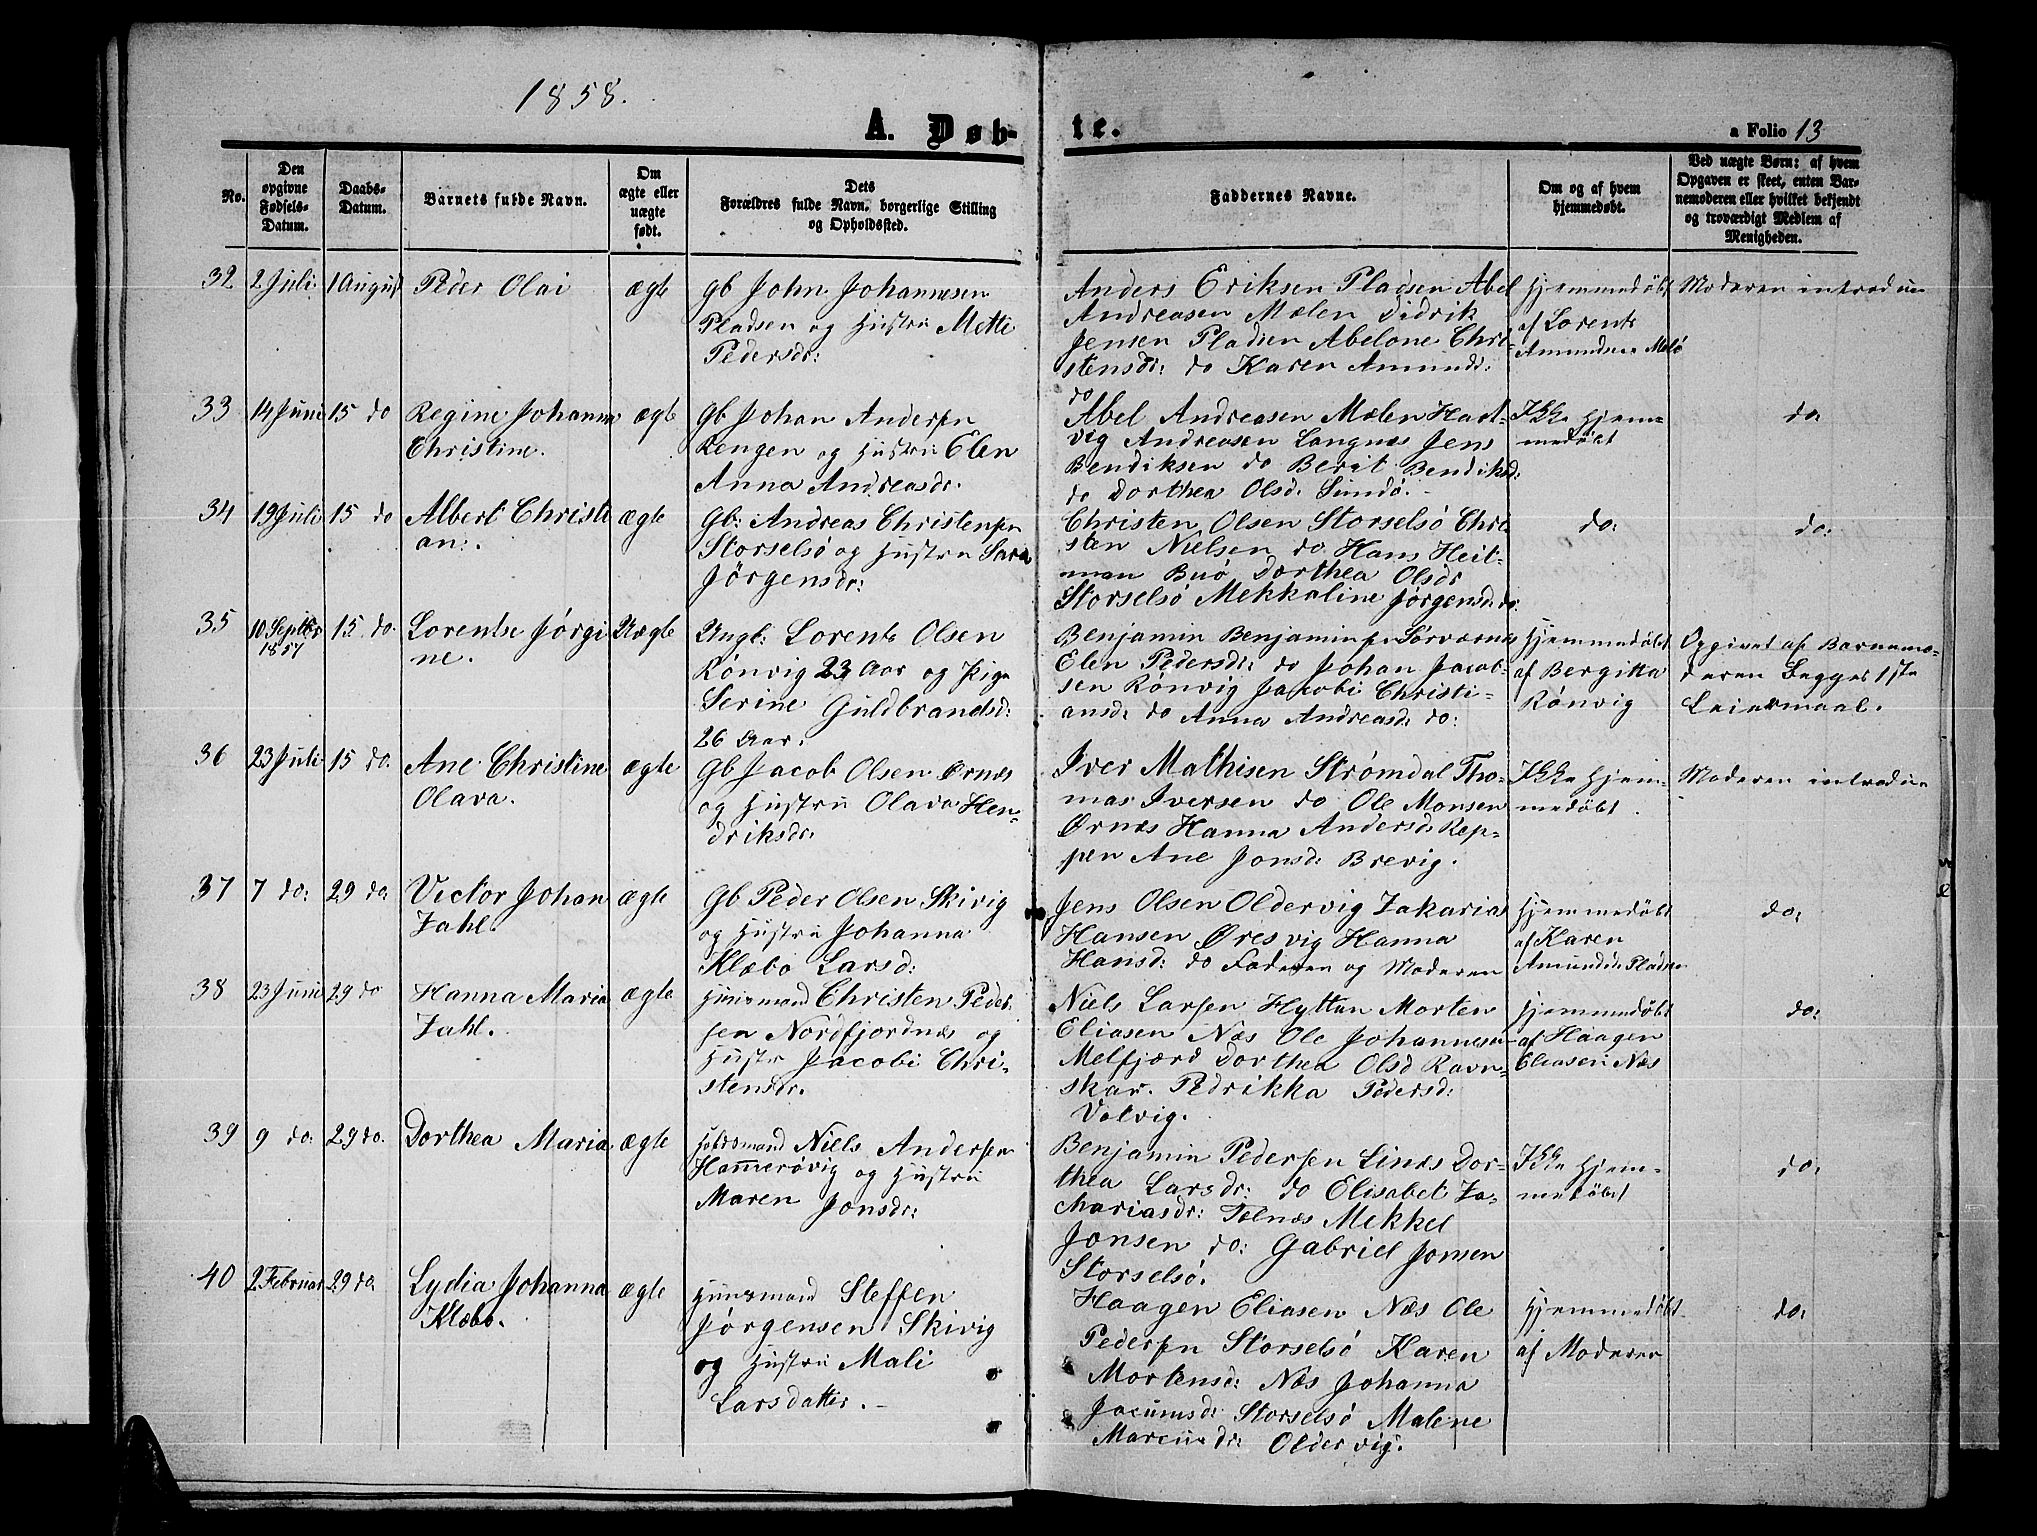 1858.
A. Døb-
te.
a Folio 13
No.
Den
opgivne
Fødsels-
Datum.
Daabs-
Datum.
Barnets fulde Navn.
Om
ægte eller
uægte
født.
Dets
Forældres fulde Navn, borgerlige Stilling
og Opholdssted.
Faddernes Navne.
Om og af hvem
hjemmedøbt.
Ved uægte Børn: af hvem
Opgaven er skeet, enten Bar-
nemoderen eller hvilket bekjendt
og troværdigt Medlem af
Menigheden.
32
2 Juli
1 August
Peder Olai
ægte
gb John Johannesen
Pladsen og Hustru Mette
Pedersdr:
Anders Eriksen Pladsen Abel
Andreasen Mælen Didrik
Jensen Pladsen Abelone Chri-
stensdr: do Karen Amunds:
do
Hjemmedøbt
af Lorents
Amundsen Melø
Moderen introdu
33
14 Juni
15 do
Regine Johanna
Christine.
ægte
gb Johan Andersen
Rengen og Hustru Elen
Anna Andreasdr.
Abel Andreasen Mælen Hart-
vig Andreasen Langnæs Jens
Bendiksen do Berit Bendiksd:
do Dorthea Olsd. Sundø.-
Ikke Hjem-
medøbt
do:
34
19 Juli
15 do
Albert Christi
an.
ægte
gb: Andreas Christensen
Storselsø og Hustru Sara
Jørgensdr:
Christen Olsen Storselsø Chri
sten Nielsen do Hans Heit-
man Buø Dorthea Olsdr
Storselsø Mekkaline Jørgensd: do:
do:
do:
35
10 Septbr
1857
15 do.
Lorentse Jørgi
ne.
Uægte
Ungk: Lorents Olsen
Rønvig 23 Aar og Pige
Serine Guldbrandsd:
26 Aar.
Benjamin Benjaminsen Sørværnes
Elen Pedersdr: do Johan Jacob-
sen Rønvig Jacobi Christi-
ansd: do Anna Andreasd: do:
Hjemmedøbt
af Bergitta
Rønvig
Opgivet af Barnemo-
deren Begges 1ste
Leiermaal.
36
23 Juli
15 do.
Ane Christine
Olava.
ægte
Gb Jacob Olsen Ørnæs
og Hustru Olava Hen-
driksdr:
Iver Mathisen Strømdal Tho-
mas Iversen do Ole Monsen
Ørnæs Hanna Andersd: Rep-
pen Ane Jonsd: Brevig.
Ikke Hjem-
medøbt.
Moderen introdu-
37
7 do:
29 do
Victor Johan
Zahl.
ægte
Gb Peder Olsen Skivig
og Hustru Johanna
Klæbo Larsd:
Jens Olsen Oldervig Zakarias
Hansen Øresvig Hanna
Hansd: do Faderen og Moderen
Hjemmedøbt
af Karen
Amundsd: Pladsen
do:
38
23 Juni
29 do
Hanna Maria
Zahl.
ægte
Huusmand Christen Peder-
sen Nordfjordnæs og
Hustr Jacobi Chri-
stensdr.
Niels Larsen Hyttan Morten
Eliasen Næs Ole Johannesen
Melfjord Dorthea Olsd Ravn-
skar. Pedrikka Pedersd:
Valvig.
Hjemmedøbt
af Haagen
Eliasen Næs
do:
39
9 do:
29 do.
Dorthea Maria
ægte
Niels Andersen
Hammerøvig og Hustru
Maren Jonsdr:
Benjamin Pedersen Linæs Dor-
thea Larsdr: do Elisabet Za-
chariasdr: Tolnæs Mekkel
Jonsen do: Gabriel Jonsen
Storselsø.
Ikke Hjem-
medøbt
do:
40
2 Februar
29 do.
Lydia Johanna
Klæbo.
ægte
Huusmand Steffen
Jørgensen Skivig
og Hustru Mali
Larsdatter.-
Haagen Eliasen Næs Ole
Pedersen Storselsø Karen
Mortensd: Næs Johanna
Storselsø Malene
Marcusdr: Oldervig.
Hjemmedøbt
af Moderen
do: